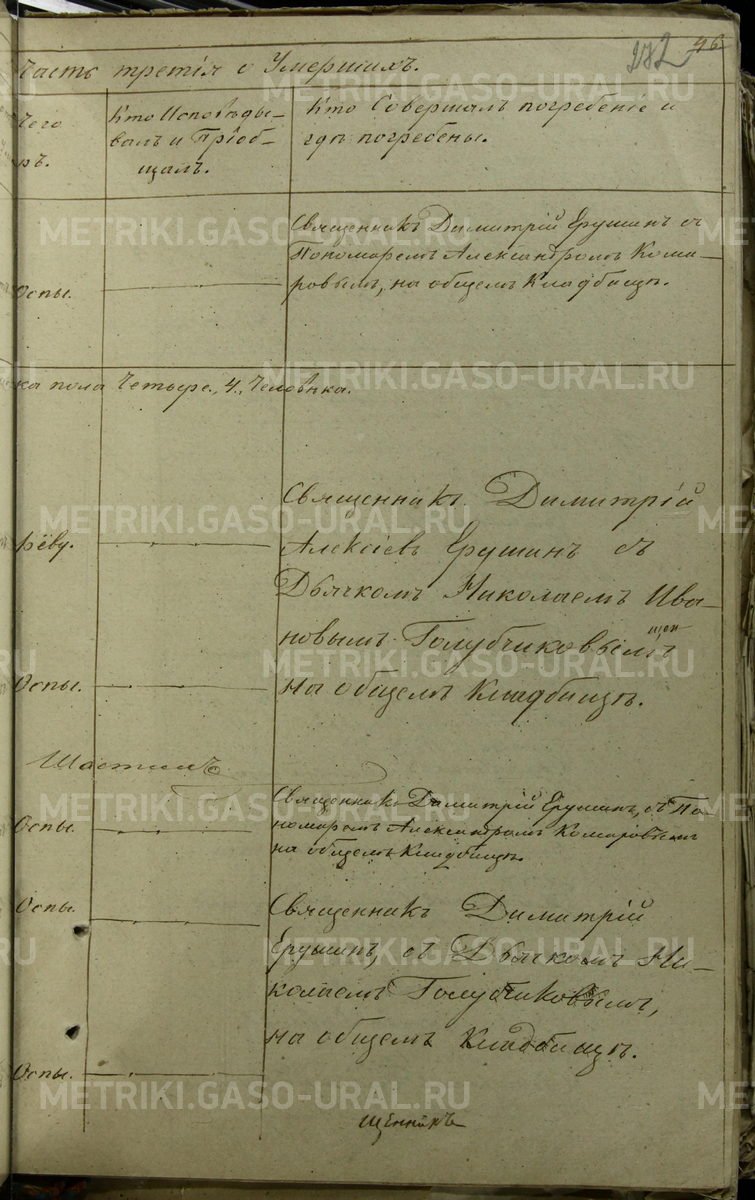 46
282
Часть третія о Умершихъ.
Чего
ръ.
Кто Исповѣды-
валъ и Пріоб-
щалъ.
Кто Совершалъ погребеніе и
гдѣ погребены.
Оспы.
Священникъ Димитрій Ерушинъ съ
Пономаремъ Александромъ Кома-
ровымъ, на общемъ Кладбищѣ.
ка пола Четыре, 4, Человѣка.
рёву.
Священникъ Димитрій
Алексіевъ Ерушинъ съ
Дьячкомъ Николаемъ Ива-
новымъ Голубчиковымъ
на общемъ Кладбищѣ.
Оспы.
Оспы.
Священникъ Димитрій Ерушинъ, съ По-
номаремъ Александромъ Комаровымъ
на общемъ Кладбищѣ.
Оспы.
Священникъ Димитрій
Ерушинъ, съ Дьячкомъ Ни-
колаемъ Голубчиковымъ,
на общемъ Кладбищѣ.
Оспы.
щенникъ
METRIKI.GASO-URAL.RU